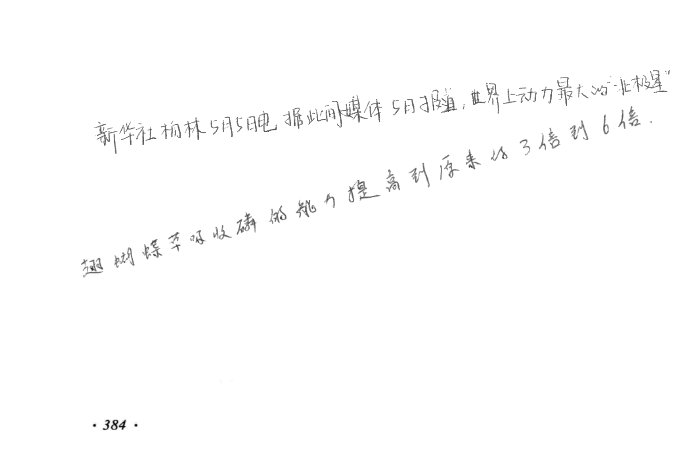 新华社柏林5月5日电 据此间媒体5月报道,世界上动力最大的“北极星”
翅蝴蝶草吸收磷的能力提高到原来的3倍到6倍.
· 384 ·